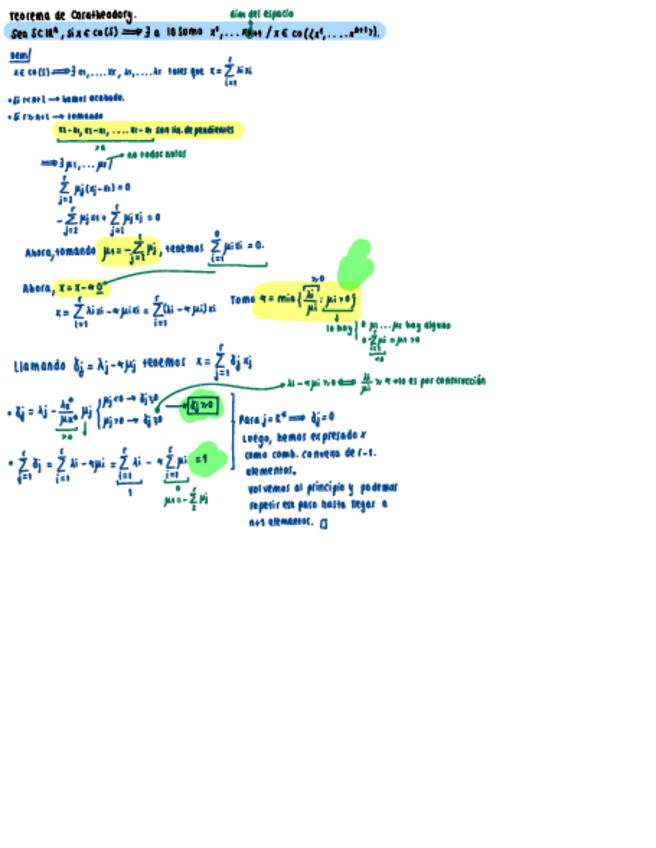 Teorema de Caratheodory.
dim del espacio
Sea S⊂ℝⁿ, si x∈co(S) ⟹ ∃ a lo sumo x¹,... xⁿ⁺¹ / x∈co({x¹,...,xⁿ⁺¹}).
Dem/
x∈co(S) ⟹ ∃ x₁,....xᵣ, λ₁,....λᵣ tales que x = Σ λᵢxᵢ
• Si r<n+2 → hemos acabado.
• Si r≥n+2 → tomando
x₂-x₁, x₃-x₁, ....xᵣ-x₁ son lin. dependientes
>n
⟹ ∃ μ₂,...μᵣ/ → no todos nulos
Σ μj(xj-x₁) = 0
- Σ μjx₁ + Σ μjxj = 0
Ahora, tomando μ₁ = - Σ μj, tenemos Σ μᵢxᵢ = 0.
Ahora, x = x-α0
x = Σ λᵢxᵢ - αμᵢxᵢ = Σ (λᵢ-αμᵢ)xᵢ
Tomo α = min { λᵢ/μᵢ : μᵢ>0 }
≥0
lo hay { 0 μ₂...μᵣ hay alguno
0 Σ μᵢ = μ₁ >0
<0
Llamando δj = λj - αμj tenemos x = Σ δj xj
λᵢ-αμᵢ ≥0 ⟺ λᵢ/μᵢ ≥ α →lo es por construcción
• δj = λj - λₖ*/μₖ* μj { μj<0 → δj≥0
μj>0 → δj≥0
→ δj≥0
>0
• Σ δj = Σ λᵢ-αμᵢ = Σ λᵢ - α Σ μᵢ = 1
1
0
μ₁ = - Σ μj
Para j=k* ⟹ δj=0
Luego, hemos expresado x
como comb. convexa de r-1.
elementos.
volvemos al principio y podemos
repetir este paso hasta llegar a
n+1 elementos. □